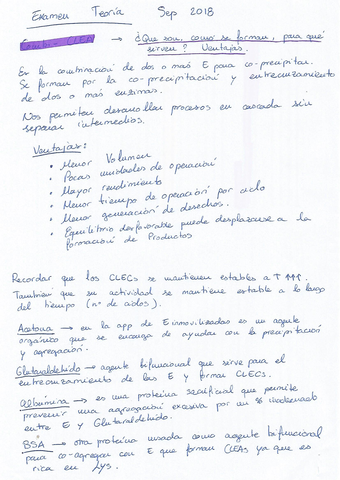 Examen Teoría Sep 2018
Combi-CLEAs → ¿Que son, como se forman, para qué
sirven? Ventajas.
Es la combinación de dos o más E para co-precipitar.
Se forman por la co-precipitación y entrecruzamiento
de dos o más enzimas.
Nos permiten desarrollar procesos en cascada sin
separar intermedios.
Ventajas:
• Menor Volumen
• Pocas unidades de operación
• Mayor rendimiento
• Menor tiempo de operación por ciclo
• Menor generación de desechos.
• Equilibrio desfavorable puede desplazarse a la
formación de Productos
Recordar que los CLECs se mantienen estables a T ↑↑↑.
También que su actividad se mantiene estable a lo largo
del tiempo (nº de ciclos).
Acetona → en la app de E inmovilizadas es un agente
orgánico que se encarga de ayudar con la precipitación
y agregación.
Glutaraldehido → agente bifuncional que sirve para el
entrecruzamiento de las E y forman CLECs.
Albúmina → es una proteína sacrificial que permite
prevenir una agregación excesiva por un % inadecuado
entre E y Glutaraldehido.
BSA → otra proteína usada como agente bifuncional
para co-agregar con E que forman CLEAs ya que es
rica en Lys.